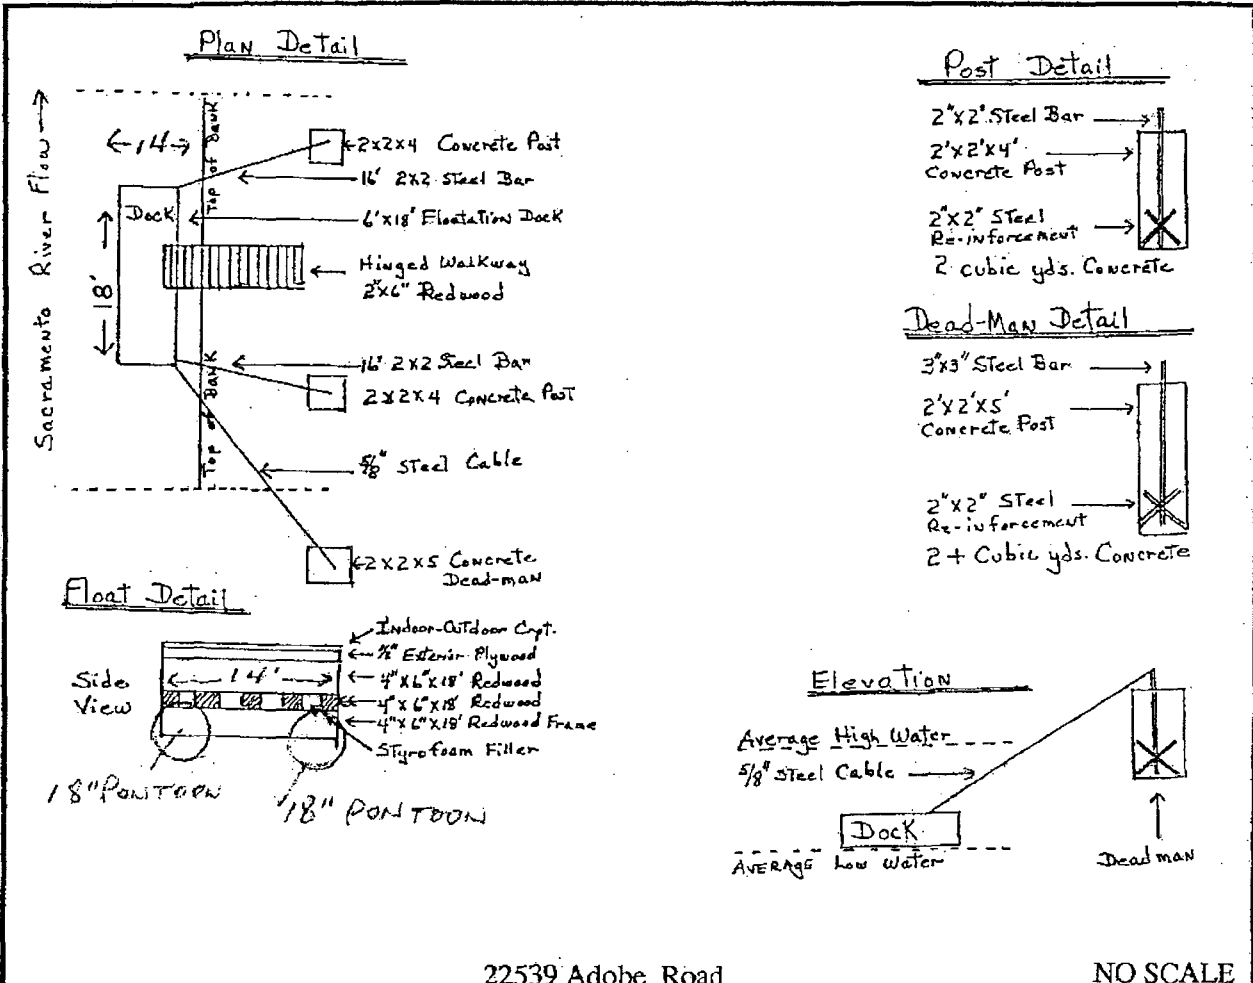 Plan Detail
Sacramento River Flow
14
Top of Bank
2x2x4 Concrete Post
16' 2x2 Steel Bar
Dock
6'x18' Floatation Dock
18'
Hinged Walkway
2"x6" Redwood
Top of Bank
16' 2x2 Steel Bar
2x2x4 Concrete Post
5/8" Steel Cable
2x2x5 Concrete
Dead-man
Float Detail
Side
View
14'
Indoor-Outdoor Crpt.
Exterior Plywood
4"x6"x18' Redwood
4"x6"x18' Redwood
4"x6"x18' Redwood Frame
Styrofoam Filler
18" PONTOON
18" PONTOON
Post Detail
2"x2" Steel Bar
2'x2'x4'
Concrete Post
2"x2" Steel
Re-inforcement
2 cubic yds. Concrete
Dead-Man Detail
3"x3" Steel Bar
2'x2'x5'
Concrete Post
2"x2" Steel
Re-inforcement
2 + Cubic yds. Concrete
Elevation
Average High Water
5/8" Steel Cable
Dock
Average Low Water
Dead man
22539 Adobe Road
NO SCALE